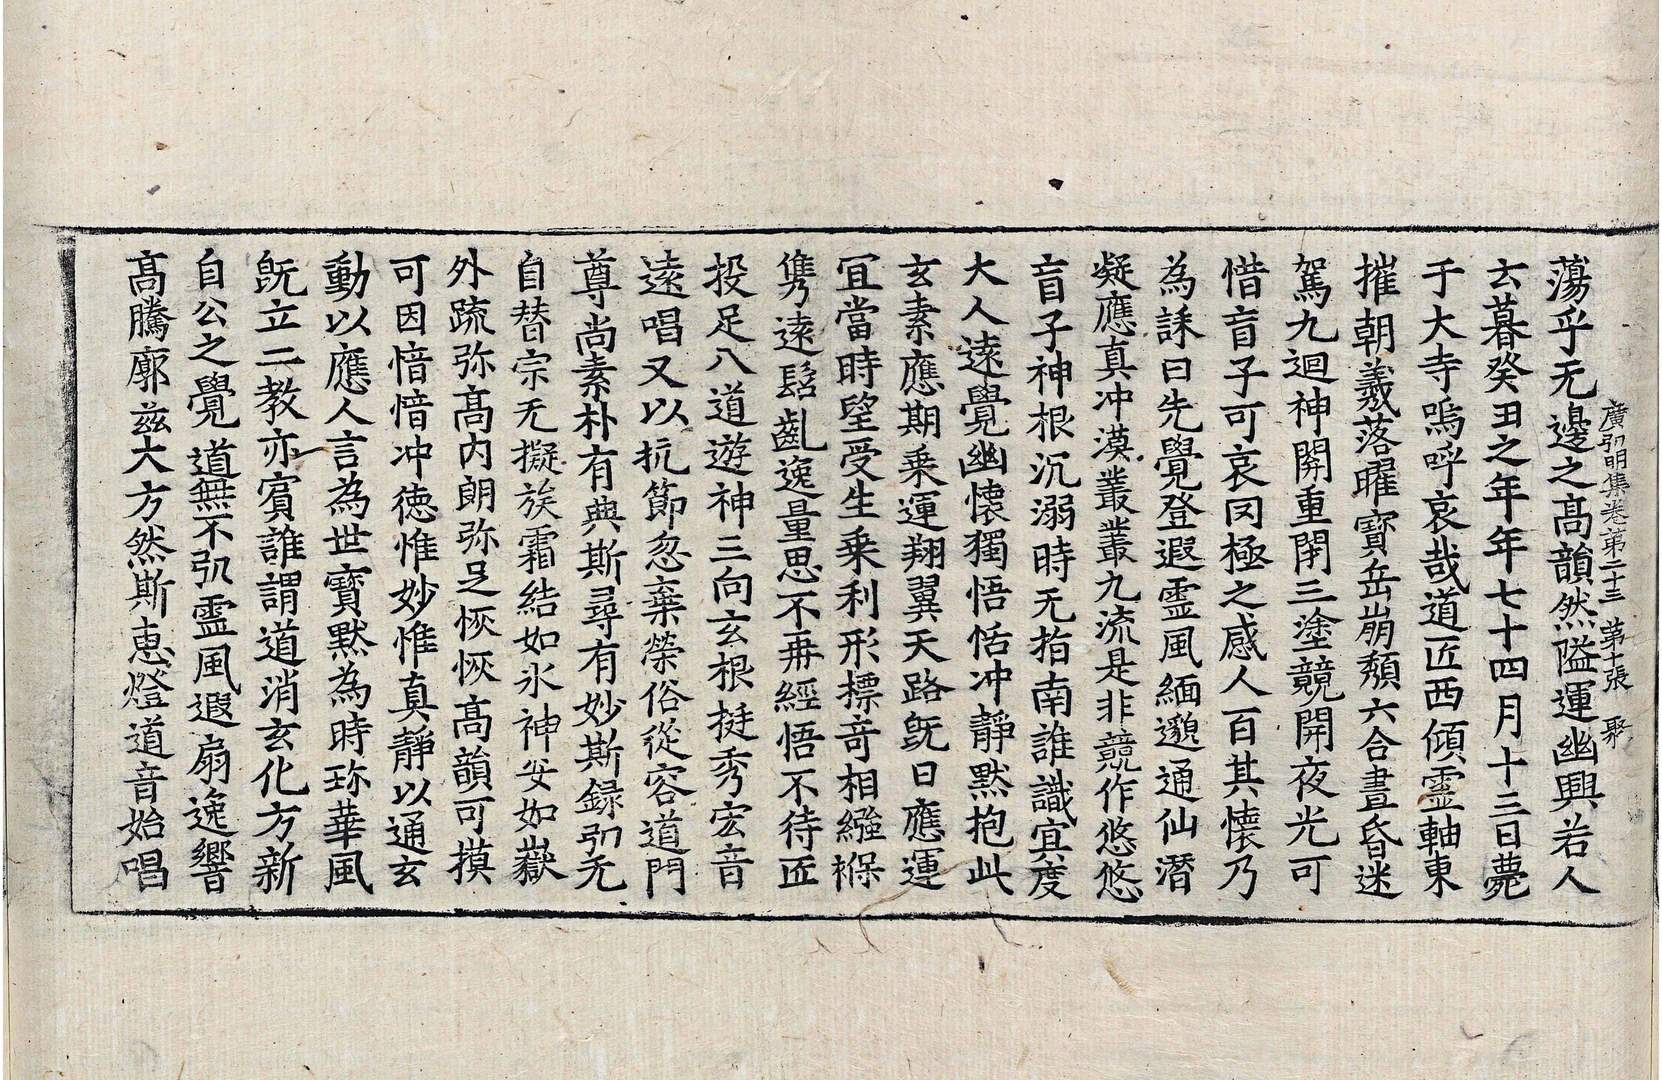 廣弘明集卷第二十三 第十張 聚
蕩乎无邊之高韻然隘運幽興若人
云暮癸丑之年年七十四月十三日薨
于大寺嗚呼哀哉道匠西傾霊軸東
摧朝羲落曜寶岳崩頽六合晝昏迷
駕九迴神開重閇三塗競開夜光可
惜盲子可哀罔極之感人百其懷乃
為誄曰先覺登遐霊風緬邈通仙潛
凝應真冲漠叢叢九流是非競作悠悠
盲子神根沉溺時无指南誰識宜度
大人遠覺幽懷獨悟恬冲靜默抱此
玄素應期乗運翔翼天路旣曰應運
冝當時望受生乗利形摽竒相繦褓
隽遠髫齓逸量思不再經悟不待匠
投足八道遊神三向玄根挺秀宏音
遠唱又以抗節忽棄榮俗從容道門
尊尚素朴有典斯尋有妙斯録弘无
自替宗无擬族霜結如氷神安如嶽
外疏弥高内朗弥足恢恢高韻可摸
可因愔愔冲徳惟妙惟真靜以通玄
動以應人言為世寶默為時珎華風
旣立二教亦賔誰謂道消玄化方新
自公之覺道無不弘霊風遐扇逸響
高騰廓兹大方然斯恵燈道音始唱